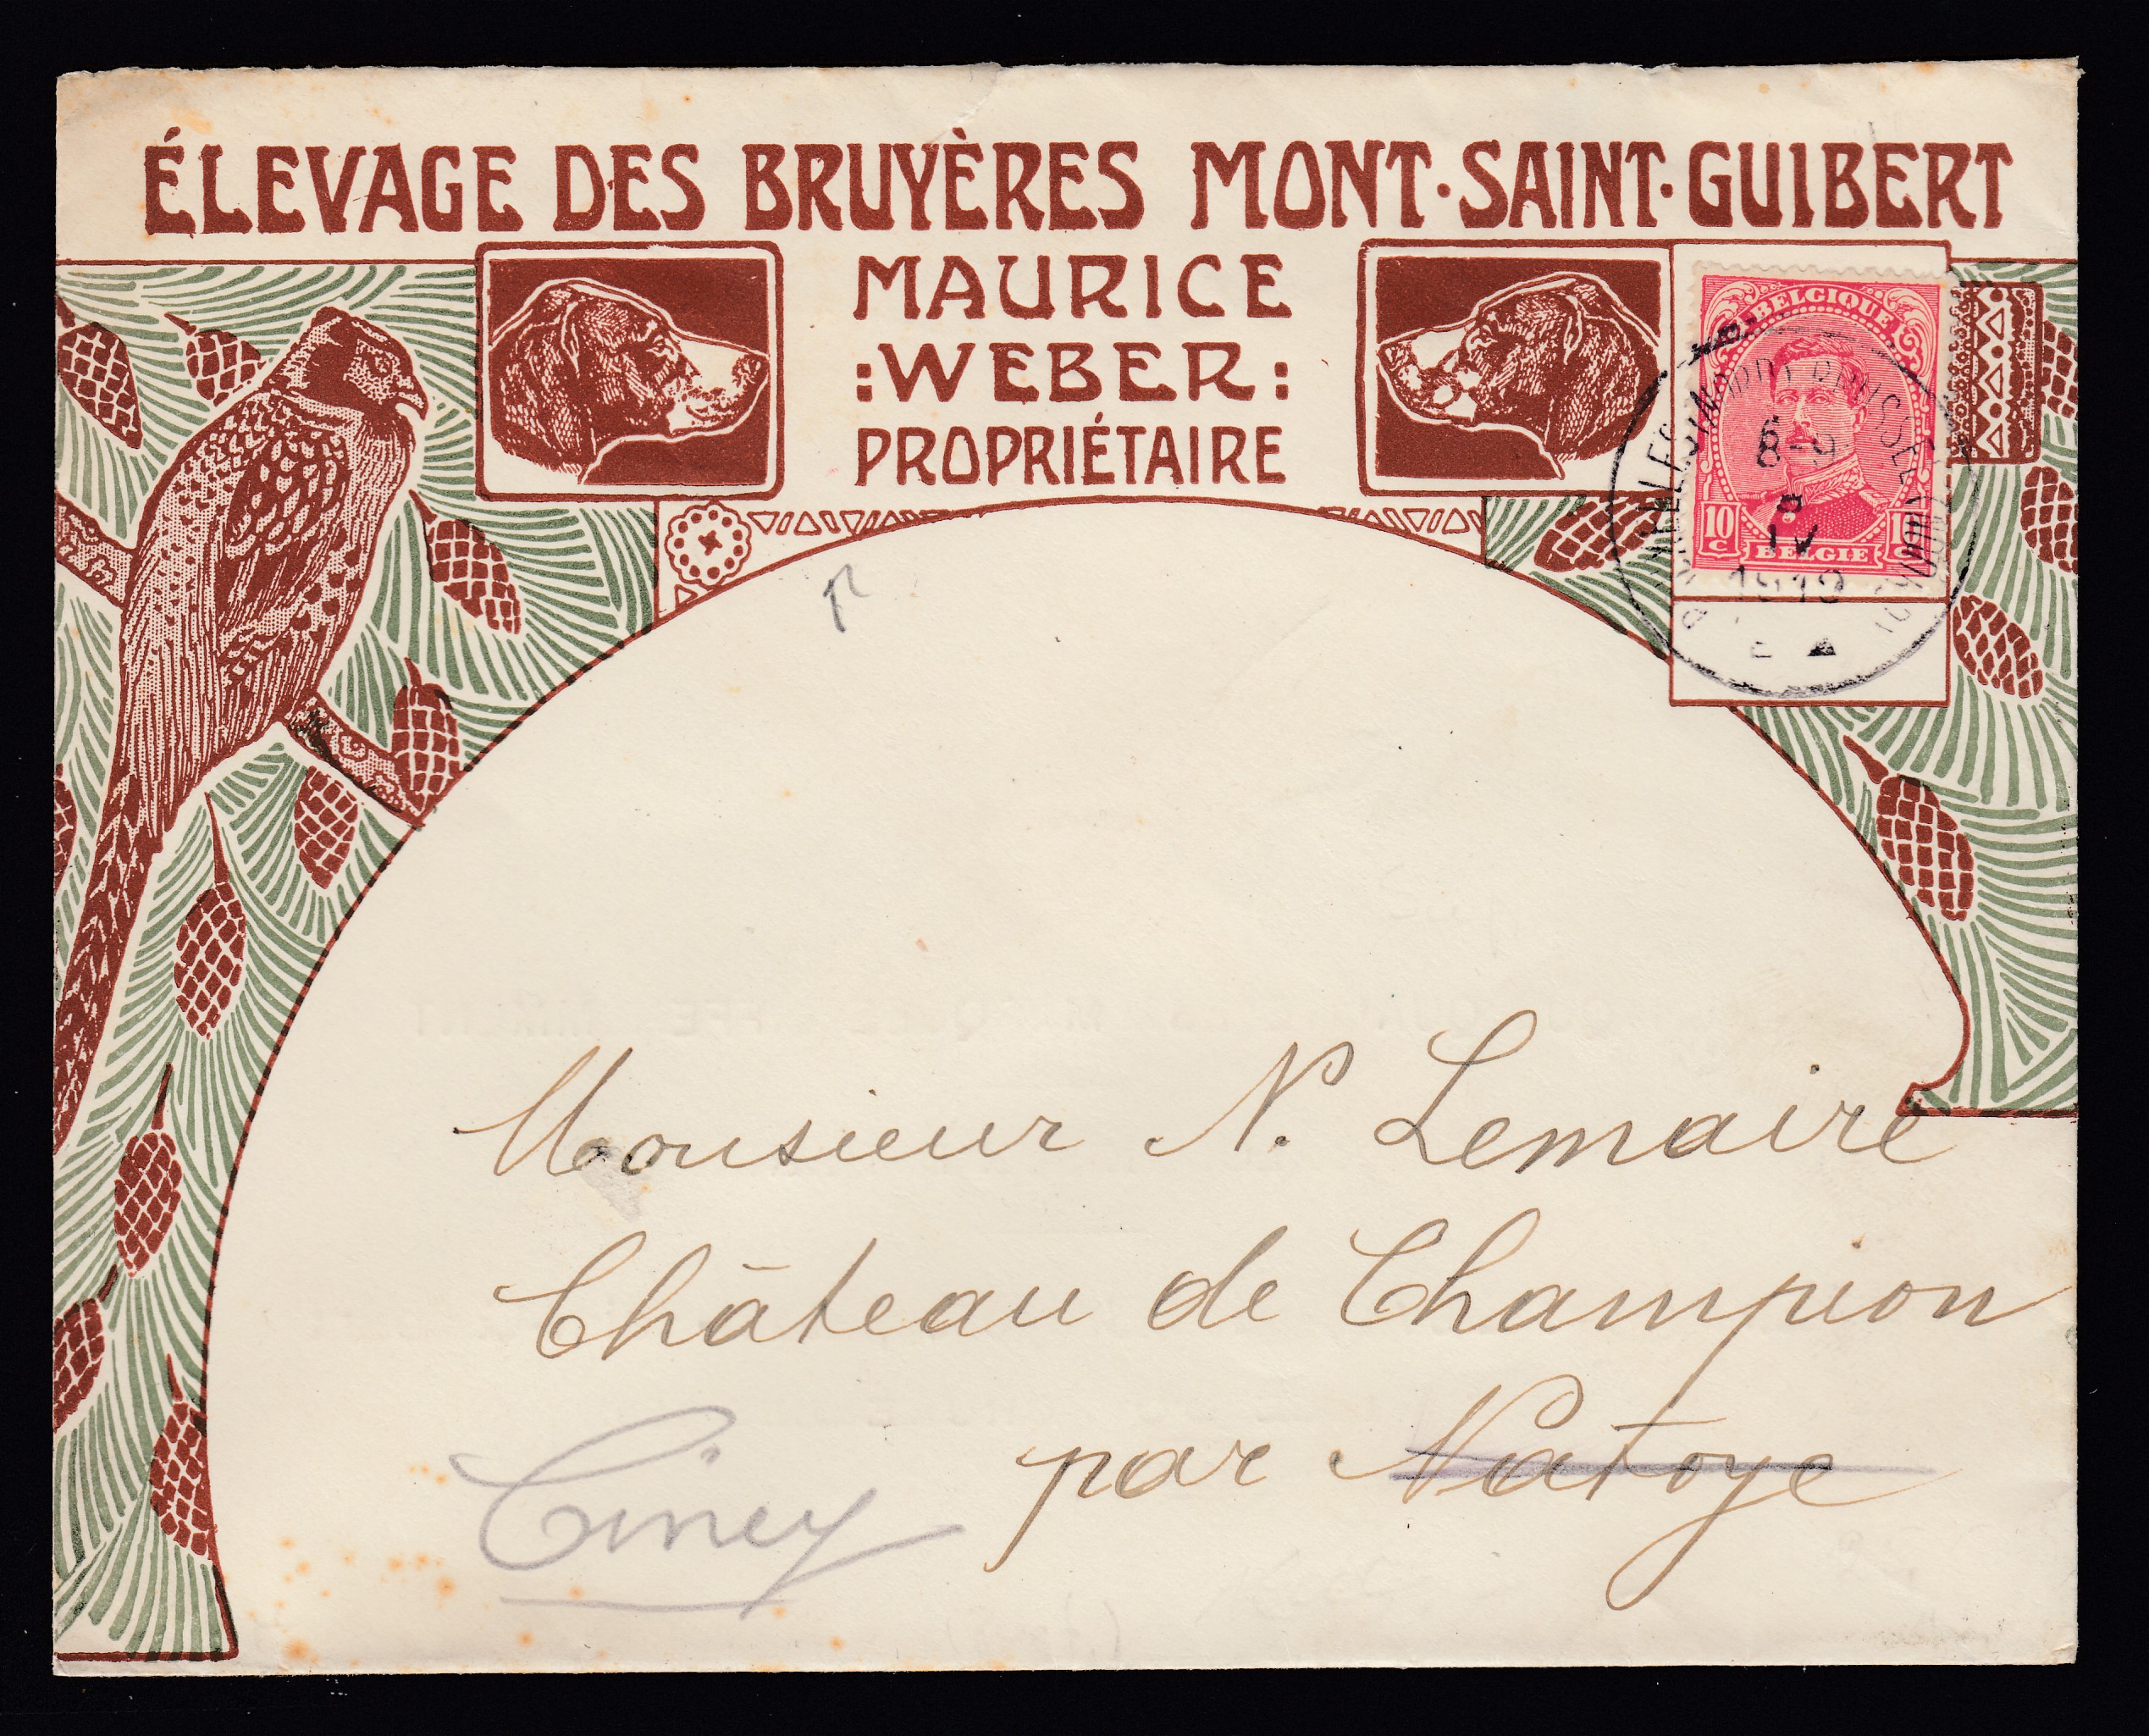 ÉLEVAGE DES BRUYÈRES MONT·SAINT·GUIBERT
MAURICE
:WEBER:
PROPRIÉTAIRE
BELGIQUE
10 c
BELGIE
8-9
8
IV
1919
Monsieur N. Lemaire
Château de Champion
par Natoye
Ciney